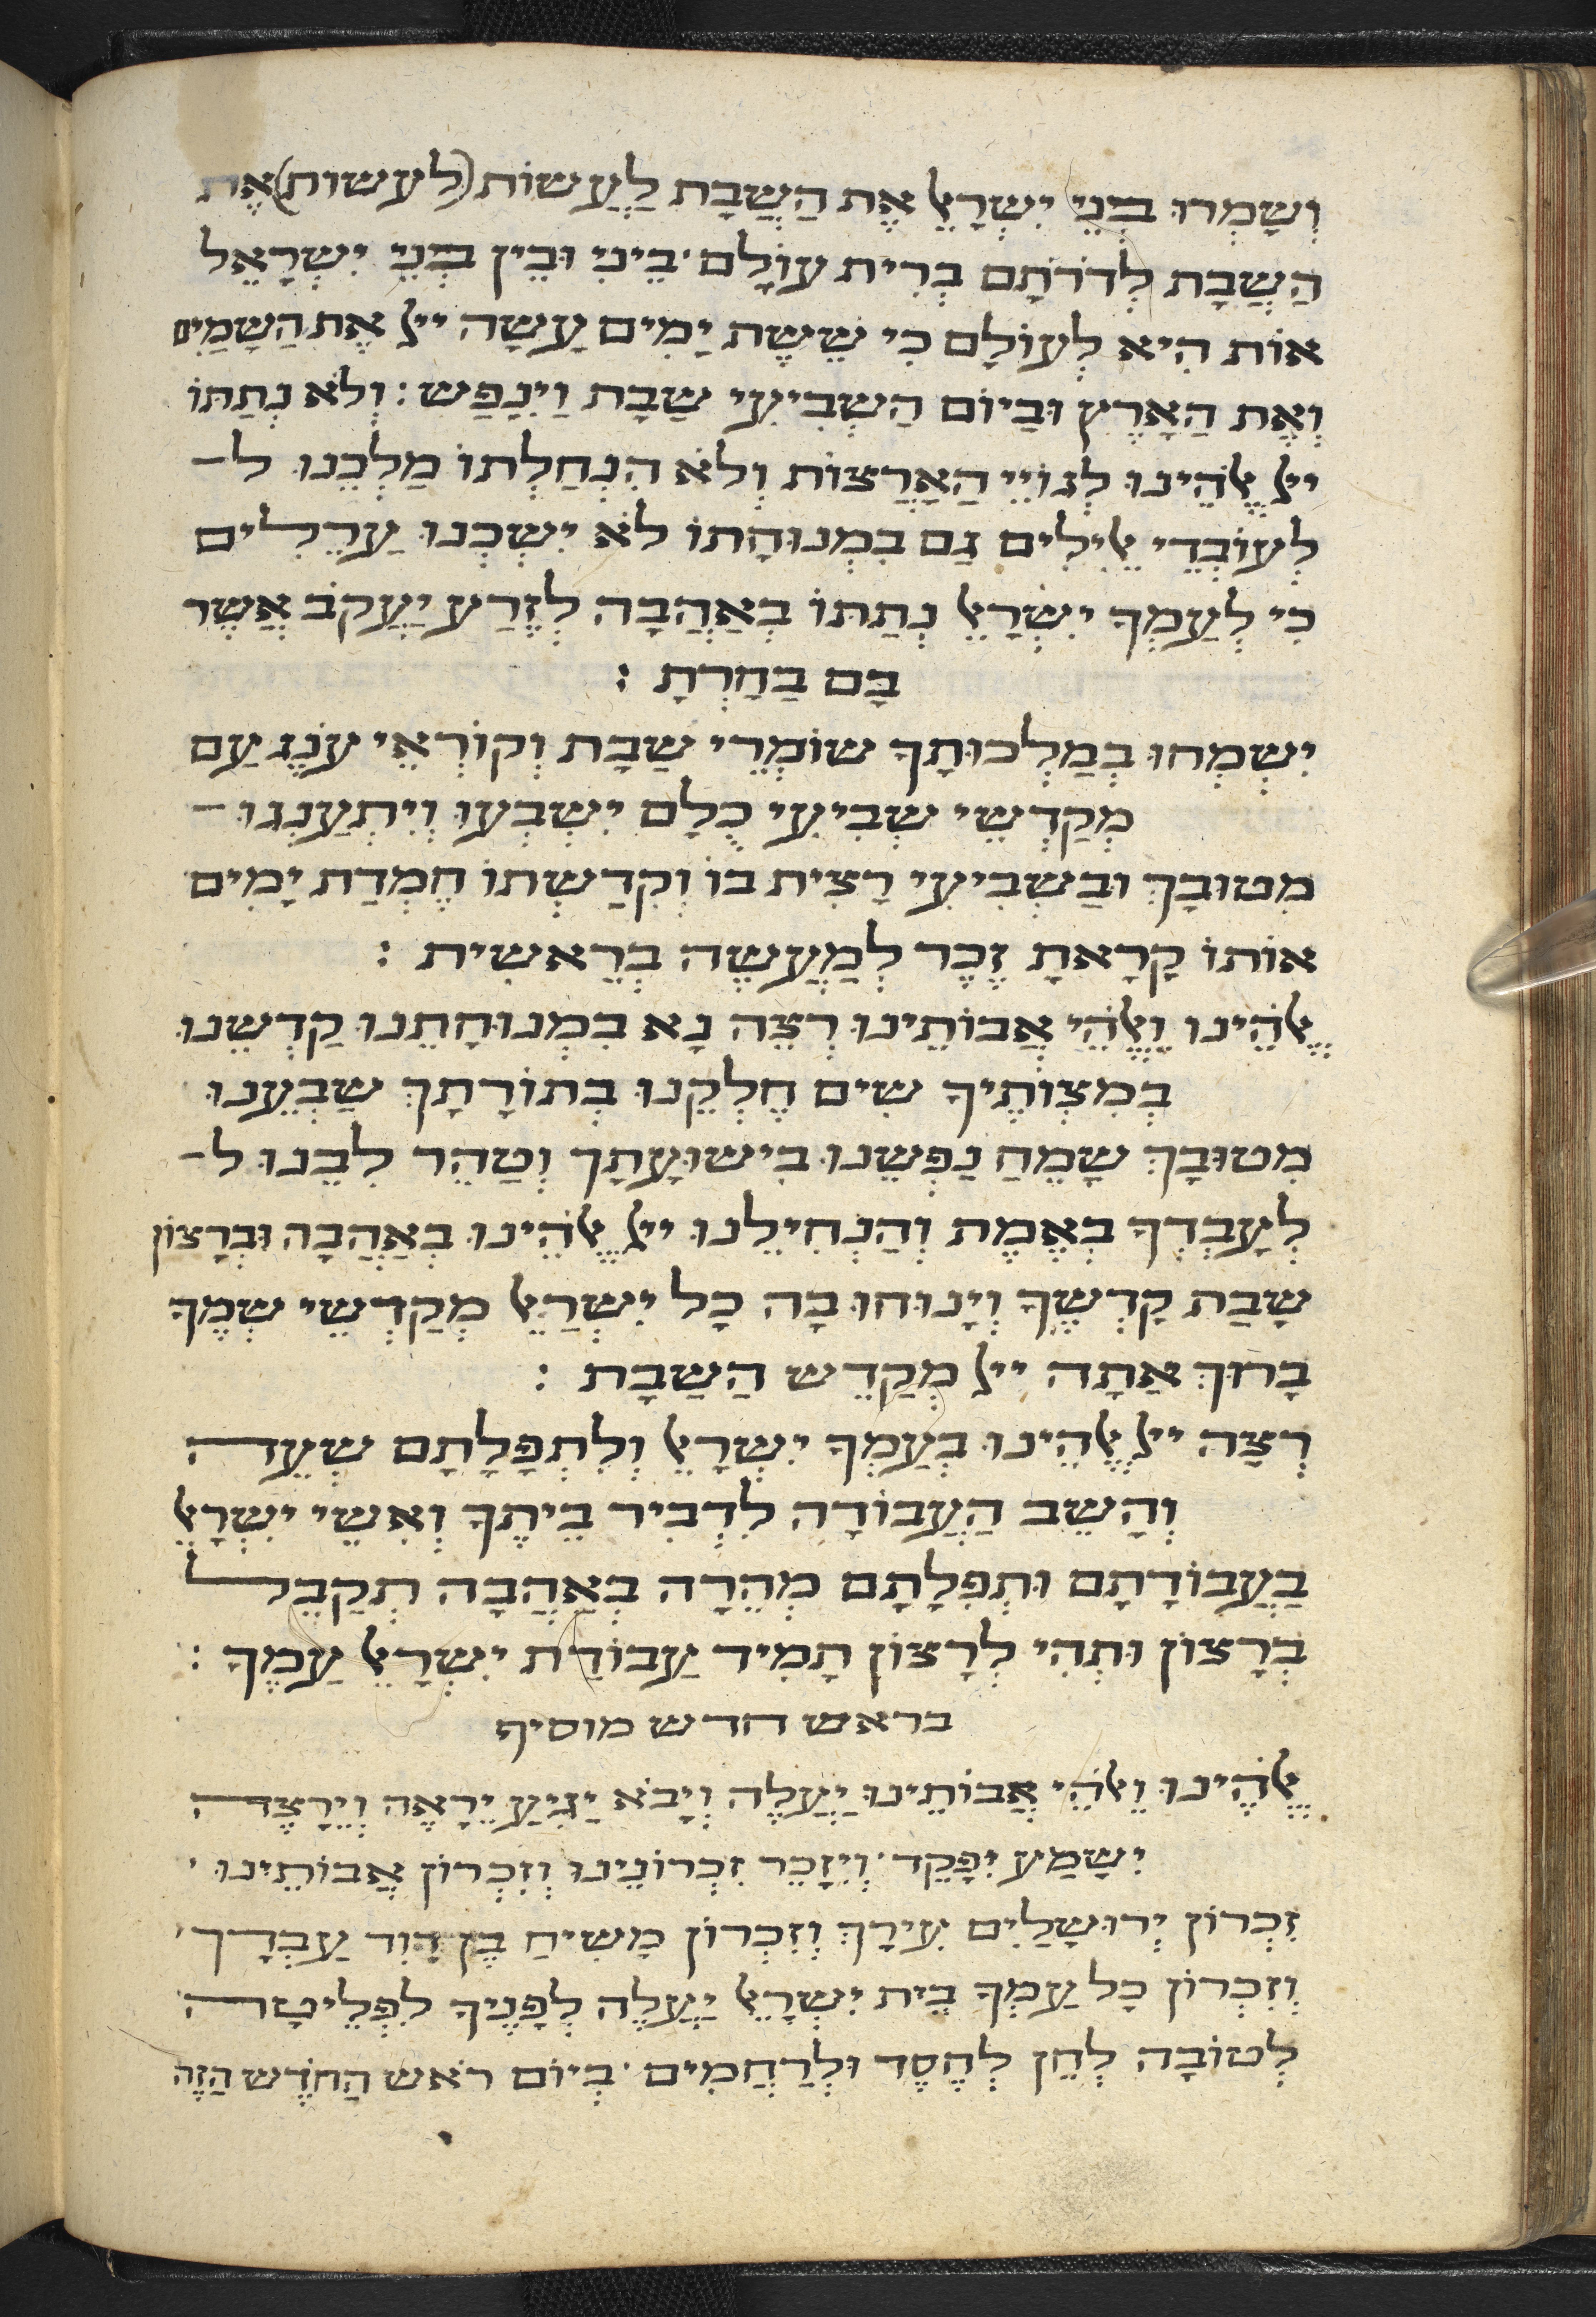 וְשָׁמְרוּ בְּנֵי יִשְׂרָאֵל אֶת הַשַּׁבָּת לַעֲשׂוֹת (לעשות) אֶת
הַשַּׁבָּת לְדֹרֹתָם בְּרִית עוֹלָם׳ בֵּינִי וּבֵין בְּנֵי יִשְׂרָאֵל
אוֹת הִיא לְעוֹלָם כִּי שֵׁשֶׁת יָמִים עָשָׂה ייי אֶת הַשָּׁמַיִם
וְאֶת הָאָרֶץ וּבַיּוֹם הַשְּׁבִיעִי שָׁבַת וַיִּנָּפַשׁ : וְלֹא נְתַתּוֹ
ייי אֱלֹהֵינוּ לְגוֹיֵי הָאֲרָצוֹת וְלֹא הִנְחַלְתּוֹ מַלְכֵּנוּ ל־
לְעוֹבְדֵי אֱילִים גַּם בִּמְנוּחָתוֹ לֹא יִשְׁכְּנוּ עֲרֵלִים
כִּי לְעַמְּךָ יִשְׂרָאֵל נְתַתּוֹ בְּאַהֲבָה לְזֶרַע יַעֲקֹב אֲשֶׁר
בָּם בָּחַרְתָּ :
יִשְׂמְחוּ בְמַלְכוּתָךְ שׁוֹמְרֵי שַׁבָּת וְקוֹרְאֵי עֹנֶג עַם
מְקַדְּשֵׁי שְׁבִיעִי כֻּלָּם יִשְׂבְּעוּ וְיִתְעַנְּגוּ ־
מִטּוּבָךְ וּבַשְּׁבִיעִי רָצִיתָ בּוֹ וְקִדַּשְׁתּוֹ חֶמְדַּת יָמִים
אוֹתוֹ קָרָאתָ זֵכֶר לְמַעֲשֶׂה בְרֵאשִׁית :
אֱלֹהֵינוּ וֵאֱלֹהֵי אֲבוֹתֵינוּ רְצֵה נָא בִּמְנוּחָתֵנוּ קַדְּשֵׁנוּ
בְּמִצְוֹתֶיךָ שִׂים חֶלְקֵנוּ בְּתוֹרָתָךְ שַׂבְּעֵנוּ
מִטּוּבָךְ שַׂמֵּחַ נַפְשֵׁנוּ בִּישׁוּעָתָךְ וְטַהֵר לִבֵּנוּ ל־
לְעָבְדְּךָ בְּאֱמֶת וְהַנְחִילֵנוּ ייי אֱלֹהֵינוּ בְּאַהֲבָה וּבְרָצוֹן
שַׁבַּת קָדְשֶׁךָ וְיָנוּחוּ בָהּ כָּל יִשְׂרָאֵל מְקַדְּשֵׁי שְׁמֶךָ
בָּרוּךְ אַתָּה ייי מְקַדֵּשׁ הַשַּׁבָּת :
רְצֵה ייי אֱלֹהֵינוּ בְּעַמְּךָ יִשְׂרָאֵל וְלִתְפִלָּתָם שְׁעֵה
וְהָשֵׁב הָעֲבוֹדָה לִדְבִיר בֵּיתֶךָ וְאִשֵּׁי יִשְׂרָאֵל
בַּעֲבוֹדָתָם וּתְפִלָּתָם מְהֵרָה בְּאַהֲבָה תְקַבֵּל
בְּרָצוֹן וּתְהִי לְרָצוֹן תָּמִיד עֲבוֹדַת יִשְׂרָאֵל עַמֶּךָ :
בראש חדש מוסיף
אֱלֹהֵינוּ וֵאלֹהֵי אֲבוֹתֵינוּ יַעֲלֶה וְיָבֹא יַגִּיעַ יֵרָאֶה וְיֵרָצֶה
יִשָּׁמַע יִפָּקֵד׳ וְיִזָּכֵר זִכְרוֹנֵינוּ וְזִכְרוֹן אֲבוֹתֵינוּ ׳
זִכְרוֹן יְרוּשָׁלַיִם עִירָךְ וְזִכְרוֹן מָשִׁיחַ בֶּן דָּוִד עַבְדָּךְ׳
וְזִכְרוֹן כָּל עַמְּךָ בֵּית יִשְׂרָאֵל יַעֲלֶה לְפָנֶיךָ לִפְלֵיטָה
לְטוֹבָה לְחֵן לְחֶסֶד וּלְרַחֲמִים׳ בְּיוֹם רֹאשׁ הַחֹדֶשׁ הַזֶּה